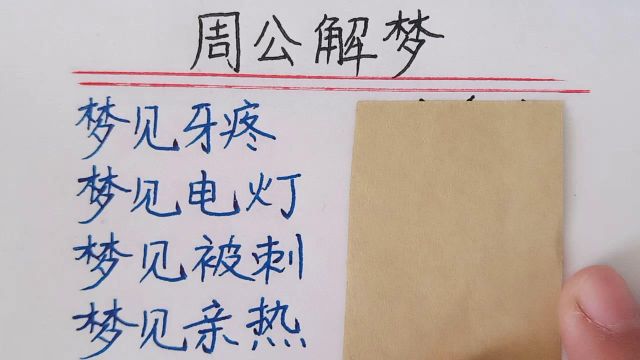 周公解梦
梦见牙疼
梦见电灯
梦见被刺
梦见亲热